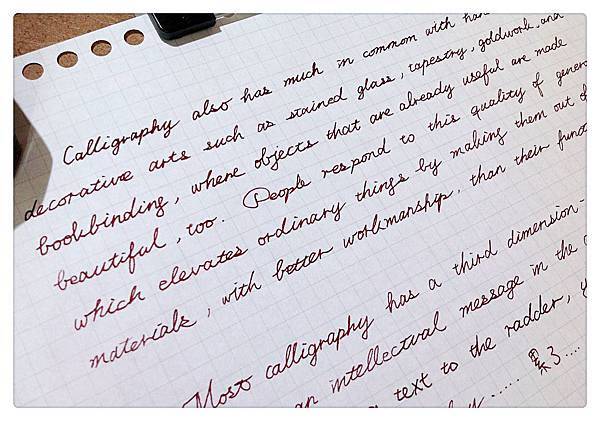 Calligraphy also has much in commom with
decorative arts such as stained glass, tapestry, goldwork, and
bookbinding, where objects that are already useful are made
beautiful, too. People respond to this quality of
which elevates ordinary things by making them out of
materials, with better workmanship, than their
Most calligraphy has a third dimension-
an intellectval message in the
text to the radder,
累了....